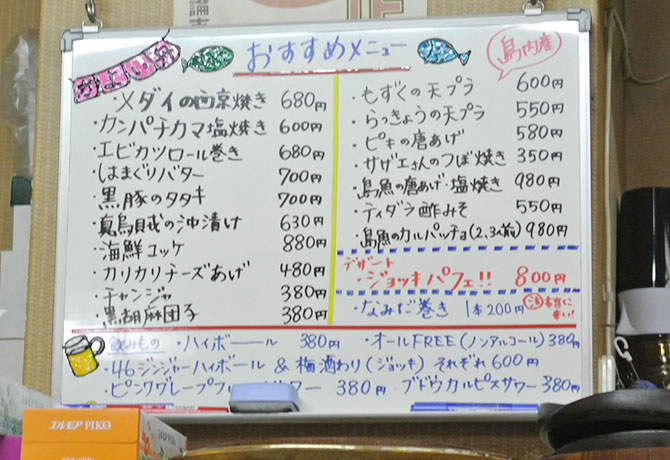 おすすめメニュー
島内産
・メダイの西京焼き 680円
・カンパチカマ塩焼き 600円
・エビカツロール巻き 680円
・はまぐりバター 700円
・黒豚のタタキ 700円
・真烏賊の沖漬け 630円
・海鮮ユッケ 880円
・カリカリチーズあげ 480円
・チャンジャ 380円
・黒胡麻団子 380円
・もずくの天プラ 600円
・らっきょうの天プラ 550円
・ピキの唐あげ 580円
・サザエさんのつぼ焼き 350円
・島魚の唐あげ・塩焼き 980円
・ティダラ酢みそ 550円
・島魚のカルパッチョ(2,3人前) 980円
デザート
・ジョッキパフェ!! 800円
・なみだ巻き 1本200円
注 本当に辛い!
飲みもの ・ハイボール 380円 ・オールFREE(ノンアルコール) 380円
・46ジンジャーハイボール & 梅酒わり(ジョッキ) それぞれ600円
・ピンクグレープフルーツサワー 380円 ・ブドウカルピスサワー 380円
エルモア PIKO